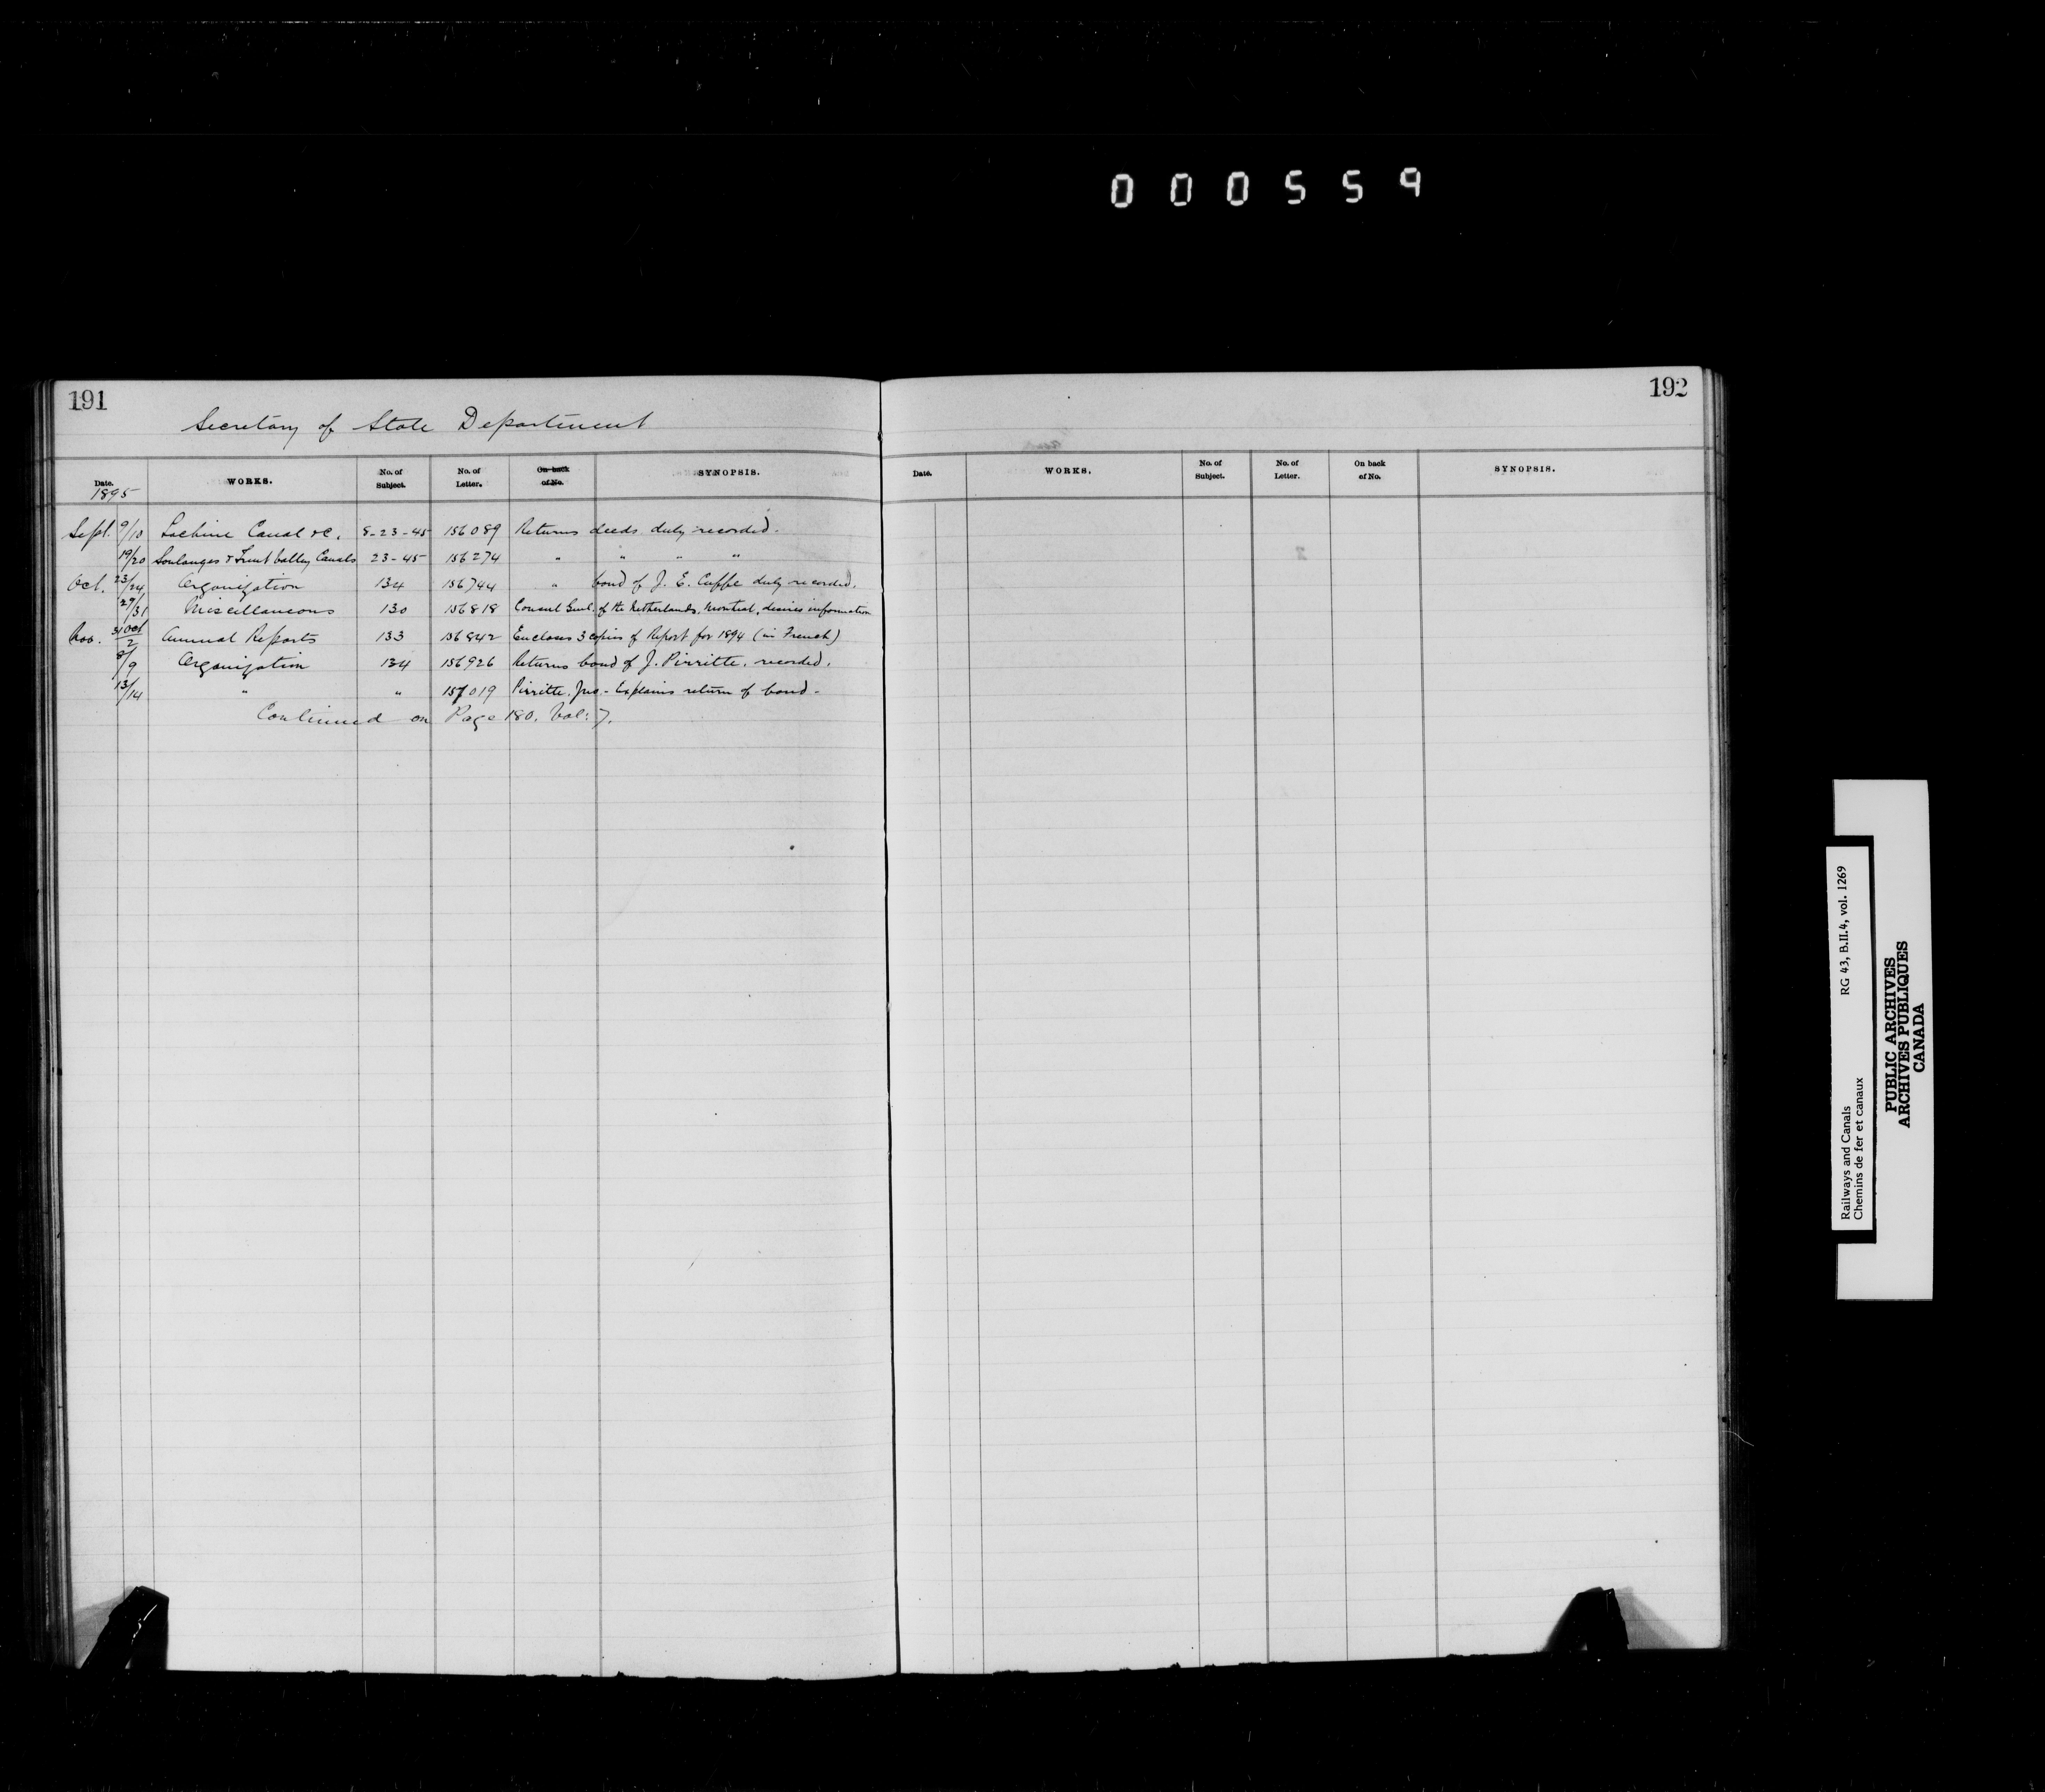 000559
191
Secretary of State Department
Date. WORKS. No. of Subject. No. of Letter. On back of No. SYNOPSIS.
1895
Sept. 9/10 Lachine Canal &c. 8-23-45 156089 Returns deeds duly recorded.
19/20 Soulanges & Trent Valley Canals 23-45 156274 " " " "
Oct. 23/24 Organization 134 156744 " bond of J. E. Cuffe duly recorded.
29/31 Miscellaneous 130 156818 Consul Genl. of the Netherlands, Montreal, desires information
Nov. 31 Oct/2 Annual Reports 133 156842 Encloses 3 copies of Report for 1894 (in French)
8/9 Organization 134 156926 Returns bond of J. Pirritte, recorded.
13/14 " " 157019 Pirritte, Jno - Explains return of bond -
Continued on Page 180. Vol: 7.
192
Date. WORKS. No. of Subject. No. of Letter. On back of No. SYNOPSIS.
Railways and Canals RG 43, B.II.4, vol. 1269
Chemins de fer et canaux
PUBLIC ARCHIVES
ARCHIVES PUBLIQUES
CANADA